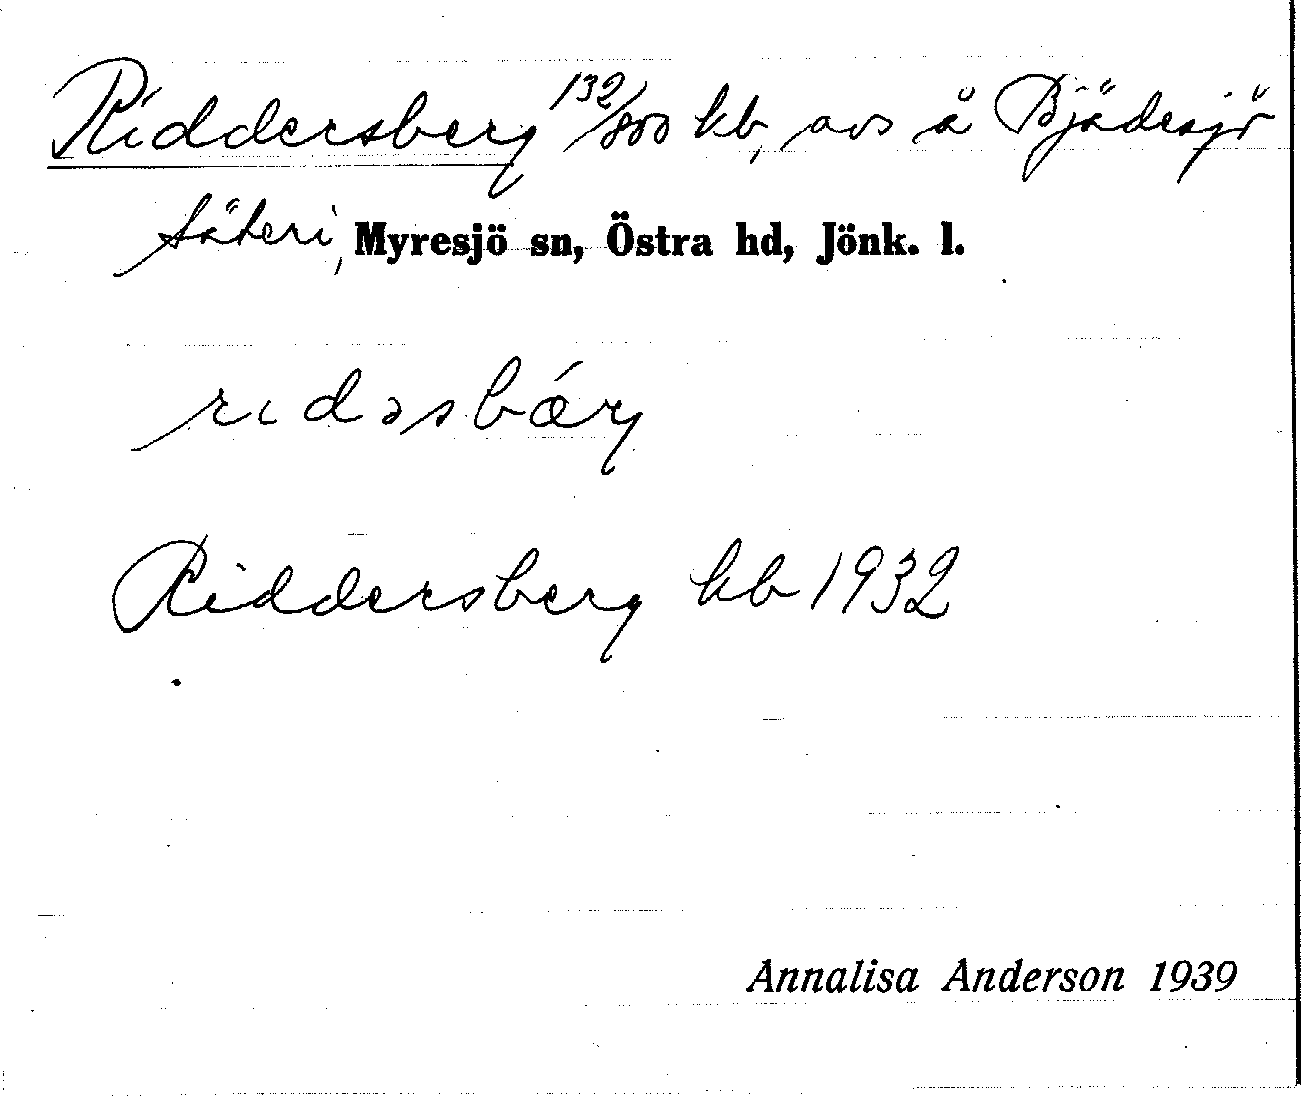 Riddersberg 132/800 kb, avs å Bjädesjö
säteri, Myresjö sn, Östra hd, Jönk. l.
rɩdəsbǽry
Riddersberg kb 1932
Annalisa Anderson 1939